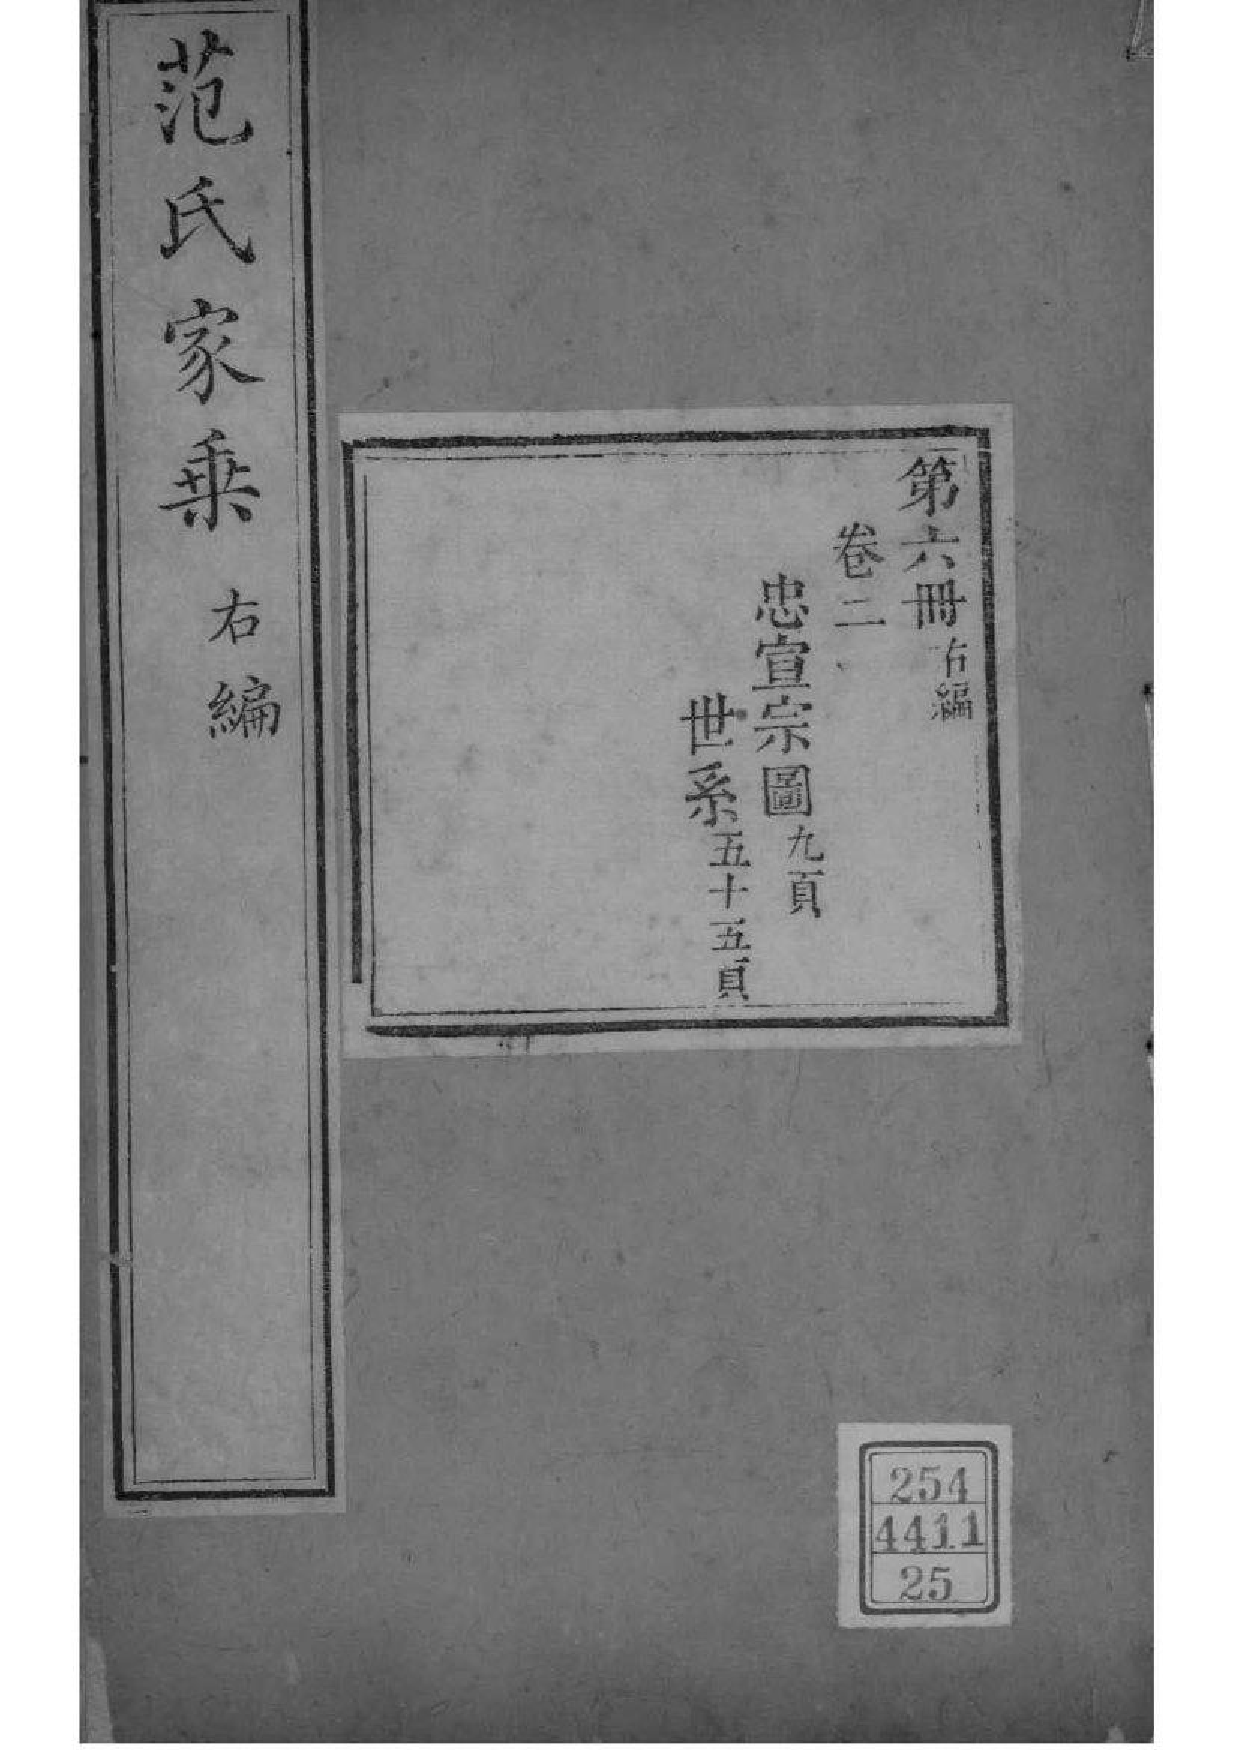 范氏家乗右編
第六冊右編
卷二
忠宣宗圖九頁
世系五十五頁
254
4411
25